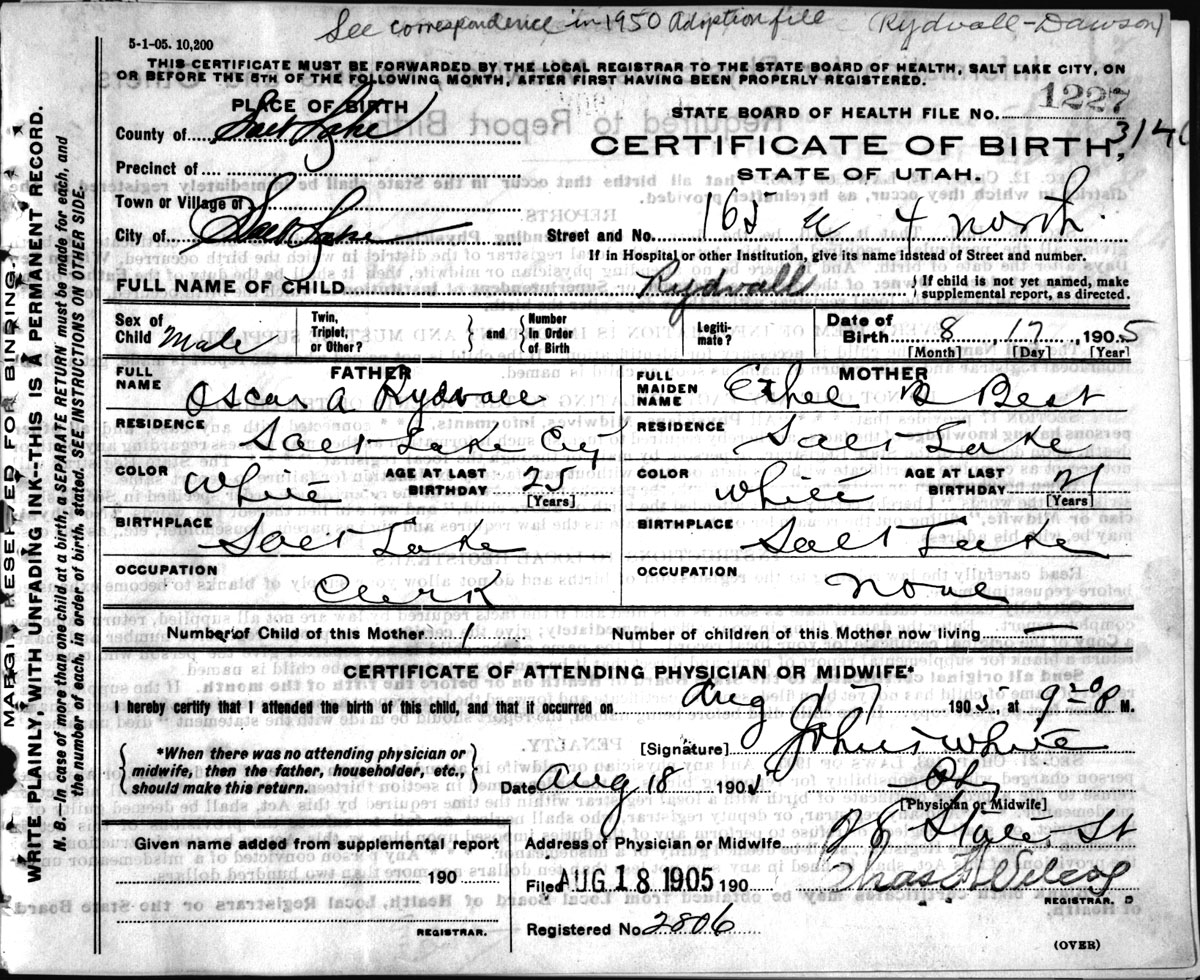 See correspondence in 1950 Adoption file (Rydvall-Dawson)
5-1-05. 10,200
THIS CERTIFICATE MUST BE FORWARDED BY THE LOCAL REGISTRAR TO THE STATE BOARD OF HEALTH, SALT LAKE CITY, ON
OR BEFORE THE 5TH OF THE FOLLOWING MONTH, AFTER FIRST HAVING BEEN PROPERLY REGISTERED.
PLACE OF BIRTH
STATE BOARD OF HEALTH FILE No. 1227
County of Salt Lake
3140
CERTIFICATE OF BIRTH,
Precinct of
STATE OF UTAH.
Town or Village of
City of Salt Lake
Street and No. 163 4 North
If in Hospital or other Institution, give its name instead of Street and number.
FULL NAME OF CHILD Rydvall
If child is not yet named, make
supplemental report, as directed.
Sex of
Child Male
Twin,
Triplet,
or Other?
and
Number
in Order
of Birth
Legiti-
mate?
Date of
Birth 8 17, 1905
[Month] [Day] [Year]
FATHER
FULL
NAME
Oscar A Rydvall
RESIDENCE
Salt Lake City
COLOR
White
AGE AT LAST
BIRTHDAY 25
[Years]
BIRTHPLACE
Salt Lake
OCCUPATION
Clerk
MOTHER
FULL
MAIDEN
NAME
Ethel B Best
RESIDENCE
Salt Lake
COLOR
White
AGE AT LAST
BIRTHDAY 21
[Years]
BIRTHPLACE
Salt Lake
OCCUPATION
None
Number of Child of this Mother 1
Number of children of this Mother now living
CERTIFICATE OF ATTENDING PHYSICIAN OR MIDWIFE*
I hereby certify that I attended the birth of this child, and that it occurred on Aug 17 1905, at 9 20 P M.
*When there was no attending physician or
midwife, then the father, householder, etc.,
should make this return.
[Signature] John S White
Date Aug 18 1905
[Physician or Midwife]
Given name added from supplemental report
190
REGISTRAR.
Address of Physician or Midwife State St
Filed AUG 18 1905 190
Chas F Wilcox
REGISTRAR.
Registered No 2806
(OVER)
MARGIN RESERVED FOR BINDING.
WRITE PLAINLY, WITH UNFADING INK--THIS IS A PERMANENT RECORD.
N. B.—In case of more than one child at a birth, a SEPARATE RETURN must be made for each, and
the number of each, in order of birth, stated. SEE INSTRUCTIONS ON OTHER SIDE.